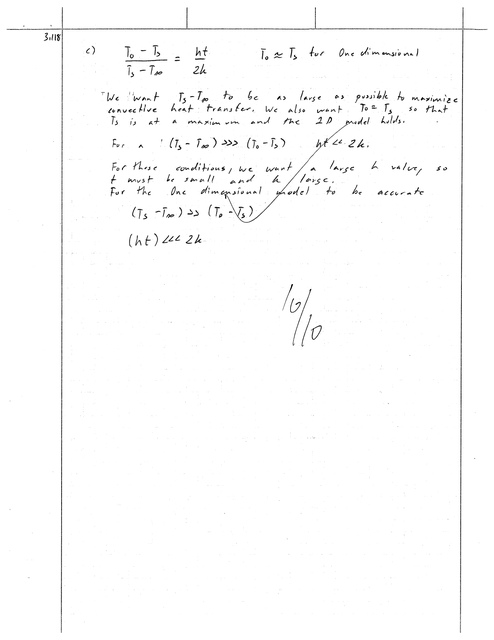 3.118
c) T₀ - Tₛ / Tₛ - T∞ = ht / 2k    T₀ ≈ Tₛ for One dimensional
We want Tₛ - T∞ to be as large as possible to maximize
convective heat transfer. We also want T₀ = Tₛ so that
Tₛ is at a maximum and the 1D model holds.
For a (Tₛ - T∞) >>> (T₀ - Tₛ)    ht << 2k.
For these conditions, we want a large h value, so
t must be small and k large.
For the One dimensional model to be accurate
(Tₛ - T∞) >> (T₀ - Tₛ)
(ht) <<< 2k
10/10